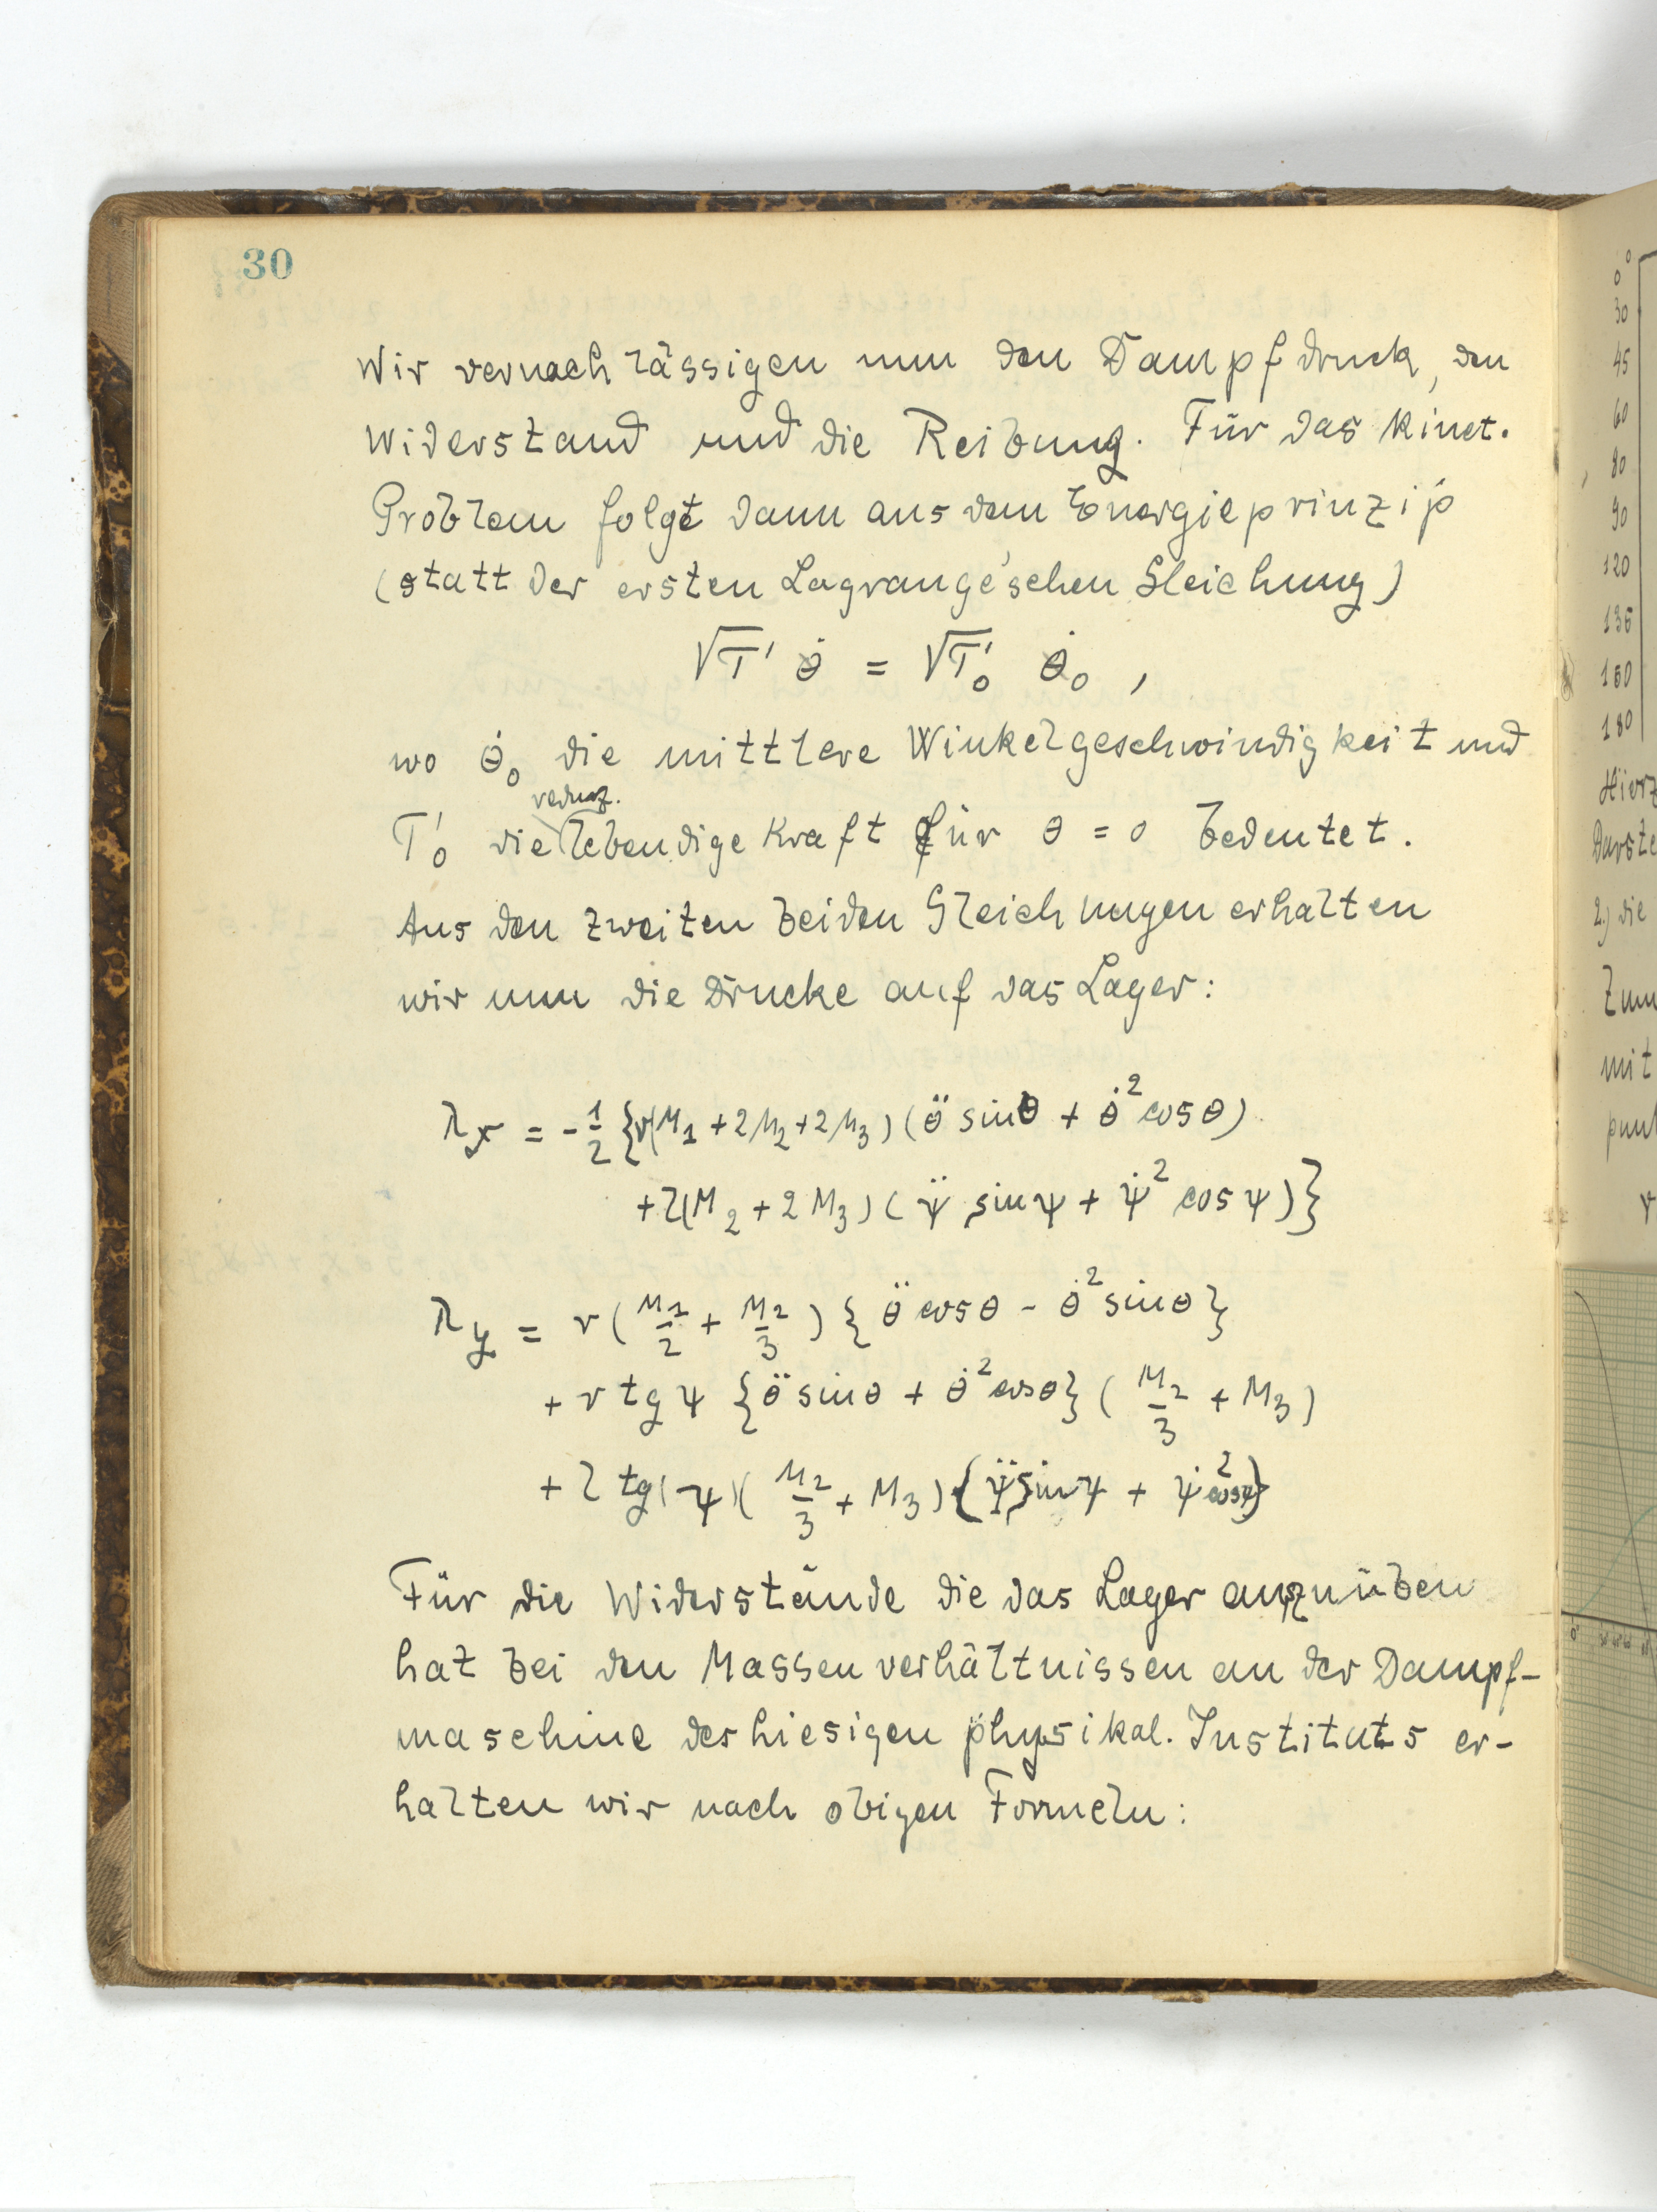 30
Wir vernachlässigen nun den Dampfdruck, den
Widerstand und die Reibung. Für das kinet.
Problem folgt dann aus dem Energieprinzip
(statt der ersten Lagrange'schen Gleichung)
√T' θ̇ = √T'₀ θ̇₀ ,
wo θ̇₀ die mittlere Winkelgeschwindigkeit und
reduz.
T'₀ die lebendige Kraft für θ = 0 bedeutet.
Aus den zweiten beiden Gleichungen erhalten
wir nun die Drucke auf das Lager:
λx = - 1/2 {r(M₁ + 2M₂ + 2M₃) (θ̈ sin θ + θ̇² cos θ)
+ l(M₂ + 2M₃) (ψ̈ sin ψ + ψ̇² cos ψ)}
λy = r (M₁/2 + M₂/3) {θ̈ cos θ - θ̇² sin θ}
+ r tg ψ {θ̈ sin θ + θ̇² cos θ} (M₂/3 + M₃)
+ l tg(-ψ) (M₂/3 + M₃) {ψ̈ sin ψ + ψ̇² cos ψ}
Für die Widerstände die das Lager auszuüben
hat bei den Massenverhältnissen an der Dampf-
maschine des hiesigen physikal. Instituts er-
halten wir nach obigen Formeln:
0
30
45
60
80
90
120
135
150
180
Hierz
Darste
2.) die
Zun
mit
punk